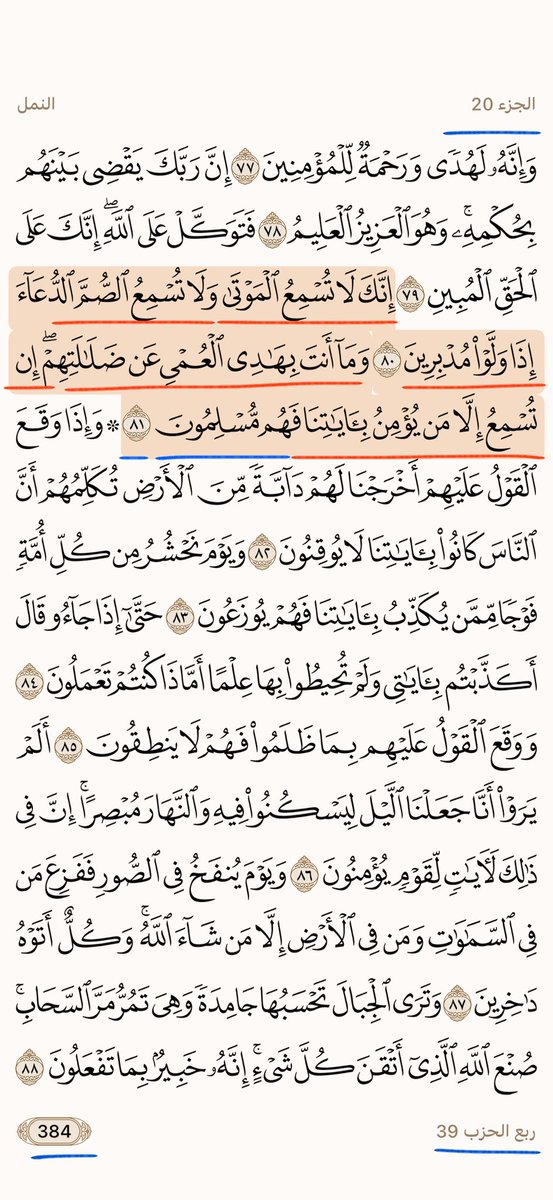 الجزء 20
النمل
وَإِنَّهُۥ لَهُدٗى وَرَحۡمَةٞ لِّلۡمُؤۡمِنِينَ ٧٧ إِنَّ رَبَّكَ يَقۡضِي بَيۡنَهُم
بِحُكۡمِهِۦۚ وَهُوَ ٱلۡعَزِيزُ ٱلۡعَلِيمُ ٧٨ فَتَوَكَّلۡ عَلَى ٱللَّهِۖ إِنَّكَ عَلَى
ٱلۡحَقِّ ٱلۡمُبِينِ ٧٩ إِنَّكَ لَا تُسۡمِعُ ٱلۡمَوۡتَىٰ وَلَا تُسۡمِعُ ٱلصُّمَّ ٱلدُّعَآءَ
إِذَا وَلَّوۡاْ مُدۡبِرِينَ ٨٠ وَمَآ أَنتَ بِهَٰدِي ٱلۡعُمۡيِ عَن ضَلَٰلَتِهِمۡۖ إِن
تُسۡمِعُ إِلَّا مَن يُؤۡمِنُ بِـَٔايَٰتِنَا فَهُم مُّسۡلِمُونَ ٨١ ۞ وَإِذَا وَقَعَ
ٱلۡقَوۡلُ عَلَيۡهِمۡ أَخۡرَجۡنَا لَهُمۡ دَآبَّةٗ مِّنَ ٱلۡأَرۡضِ تُكَلِّمُهُمۡ أَنَّ
ٱلنَّاسَ كَانُواْ بِـَٔايَٰتِنَا لَا يُوقِنُونَ ٨٢ وَيَوۡمَ نَحۡشُرُ مِن كُلِّ أُمَّةٖ
فَوۡجٗا مِّمَّن يُكَذِّبُ بِـَٔايَٰتِنَا فَهُمۡ يُوزَعُونَ ٨٣ حَتَّىٰٓ إِذَا جَآءُو قَالَ
أَكَذَّبۡتُم بِـَٔايَٰتِي وَلَمۡ تُحِيطُواْ بِهَا عِلۡمًا أَمَّاذَا كُنتُمۡ تَعۡمَلُونَ ٨٤
وَوَقَعَ ٱلۡقَوۡلُ عَلَيۡهِم بِمَا ظَلَمُواْ فَهُمۡ لَا يَنطِقُونَ ٨٥ أَلَمۡ
يَرَوۡاْ أَنَّا جَعَلۡنَا ٱلَّيۡلَ لِيَسۡكُنُواْ فِيهِ وَٱلنَّهَارَ مُبۡصِرًاۚ إِنَّ فِي
ذَٰلِكَ لَأٓيَٰتٖ لِّقَوۡمٖ يُؤۡمِنُونَ ٨٦ وَيَوۡمَ يُنفَخُ فِي ٱلصُّورِ فَفَزِعَ مَن
فِي ٱلسَّمَٰوَٰتِ وَمَن فِي ٱلۡأَرۡضِ إِلَّا مَن شَآءَ ٱللَّهُۚ وَكُلٌّ أَتَوۡهُ
دَٰخِرِينَ ٨٧ وَتَرَى ٱلۡجِبَالَ تَحۡسَبُهَا جَامِدَةٗ وَهِيَ تَمُرُّ مَرَّ ٱلسَّحَابِۚ
صُنۡعَ ٱللَّهِ ٱلَّذِيٓ أَتۡقَنَ كُلَّ شَيۡءٍۚ إِنَّهُۥ خَبِيرُۢ بِمَا تَفۡعَلُونَ ٨٨
ربع الحزب 39
384